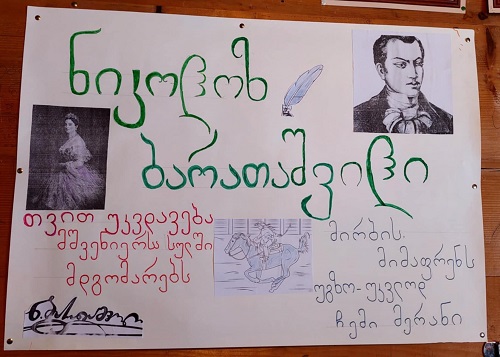 ნიკოლოზ
ბარათაშვილი
თვით უკვდავება
მშვენიერს სულში
მდგომარებს
მირბის,
მიმაფრენს
უგზო-უკვლოდ
ჩემი მერანი